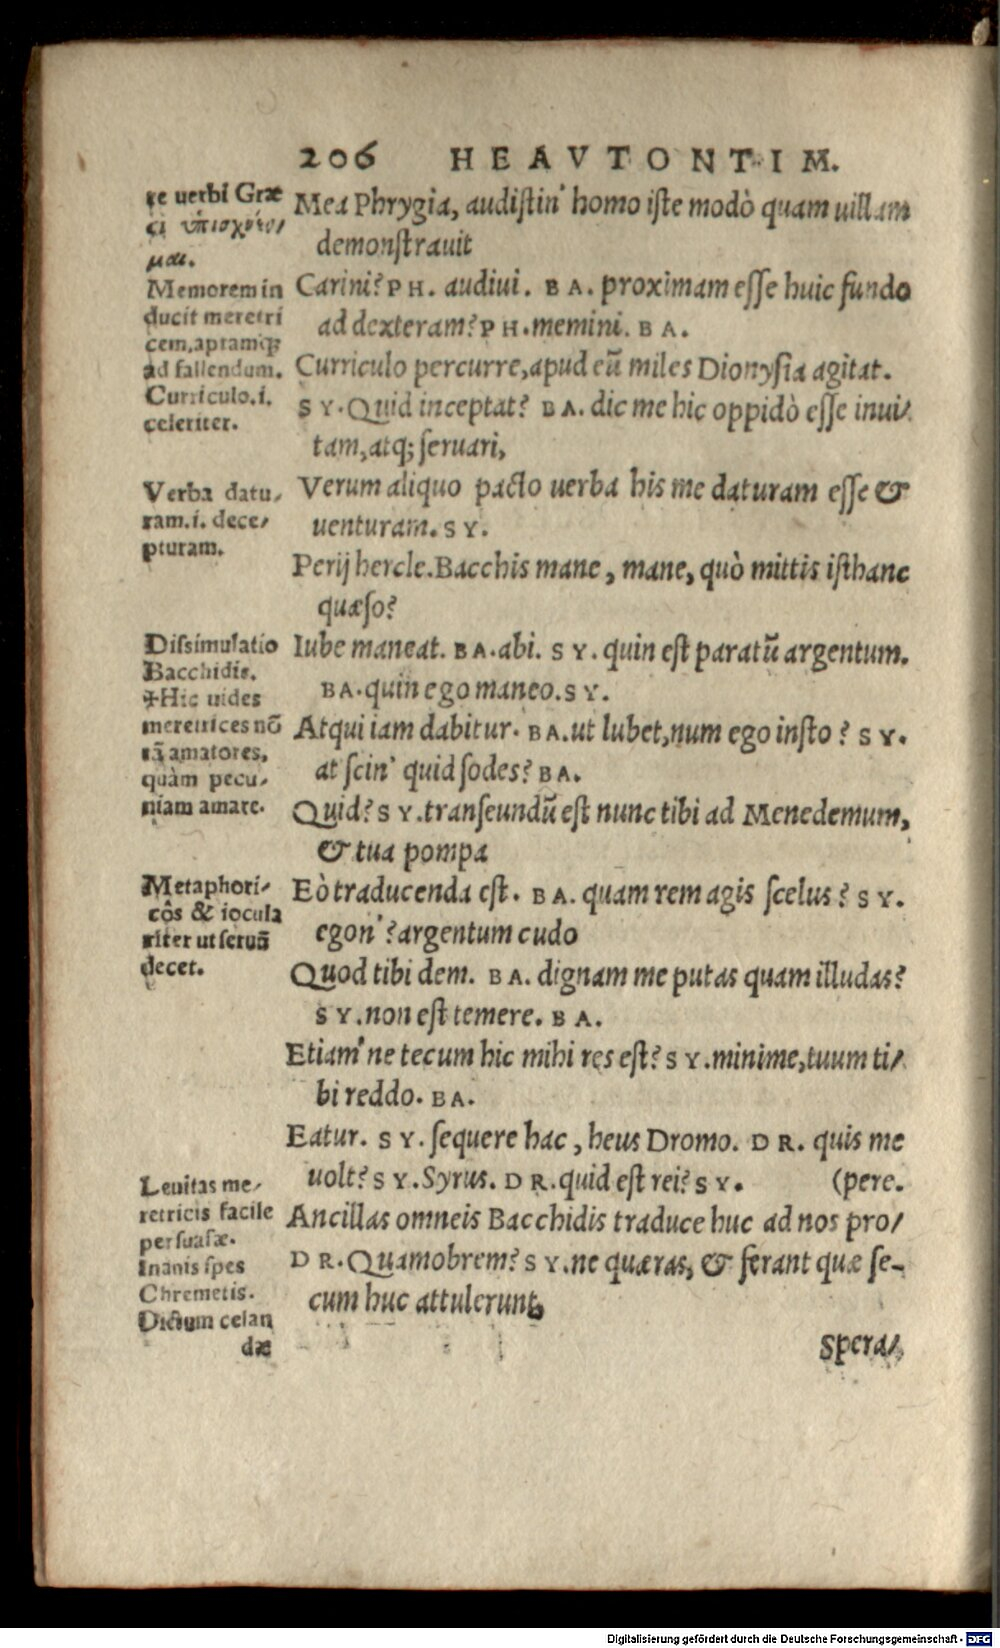 206 HEAVTONTIM.
re uerbi Græ
ci ὑπισχνέο/
μαι.
Memorem in
ducit meretri
cem, aptamq́;
ad fallendum.
Curriculo.i.
celeriter.
Verba datu/
ram.i. dece/
pturam.
Dissimulatio
Bacchidis.
✢Hic uides
meretrices nō
tā amatores,
quàm pecu/
niam amare.
Metaphori/
cῶs & iocula
riter ut seruū
decet.
Leuitas me/
retricis facile
persuasæ.
Inanis spes
Chremetis.
Dictum celan
dæ
Mea Phrygia, audistin' homo iste modò quam uillam
demonstrauit
Carini? PH. audiui. BA. proximam esse huic fundo
ad dexteram? PH. memini. BA.
Curriculo percurre, apud eū miles Dionysia agitat.
SY. Quid inceptat? BA. dic me hic oppidò esse inui/
tam, atq; seruari,
Verum aliquo pacto uerba his me daturam esse &
uenturam. SY.
Perij hercle. Bacchis mane, mane, quò mittis isthanc
quæso?
Iube maneat. BA. abi. SY. quin est paratū argentum.
BA. quin ego maneo. SY.
Atqui iam dabitur. BA. ut lubet, num ego insto? SY.
at scin' quid sodes? BA.
Quid? SY. transeundū est nunc tibi ad Menedemum,
& tua pompa
Eò traducenda est. BA. quam rem agis scelus? SY.
egon'? argentum cudo
Quod tibi dem. BA. dignam me putas quam illudas?
SY. non est temere. BA.
Etiam'ne tecum hic mihi res est? SY. minime, tuum ti/
bi reddo. BA.
Eatur. SY. sequere hac, heus Dromo. DR. quis me
uolt? SY. Syrus. DR. quid est rei? SY. (pere.
Ancillas omneis Bacchidis traduce huc ad nos pro/
DR. Quamobrem? SY. ne quæras, & ferant quæ se-
cum huc attulerunt,
Spera/
Digitalisierung gefördert durch die Deutsche Forschungsgemeinschaft - DFG